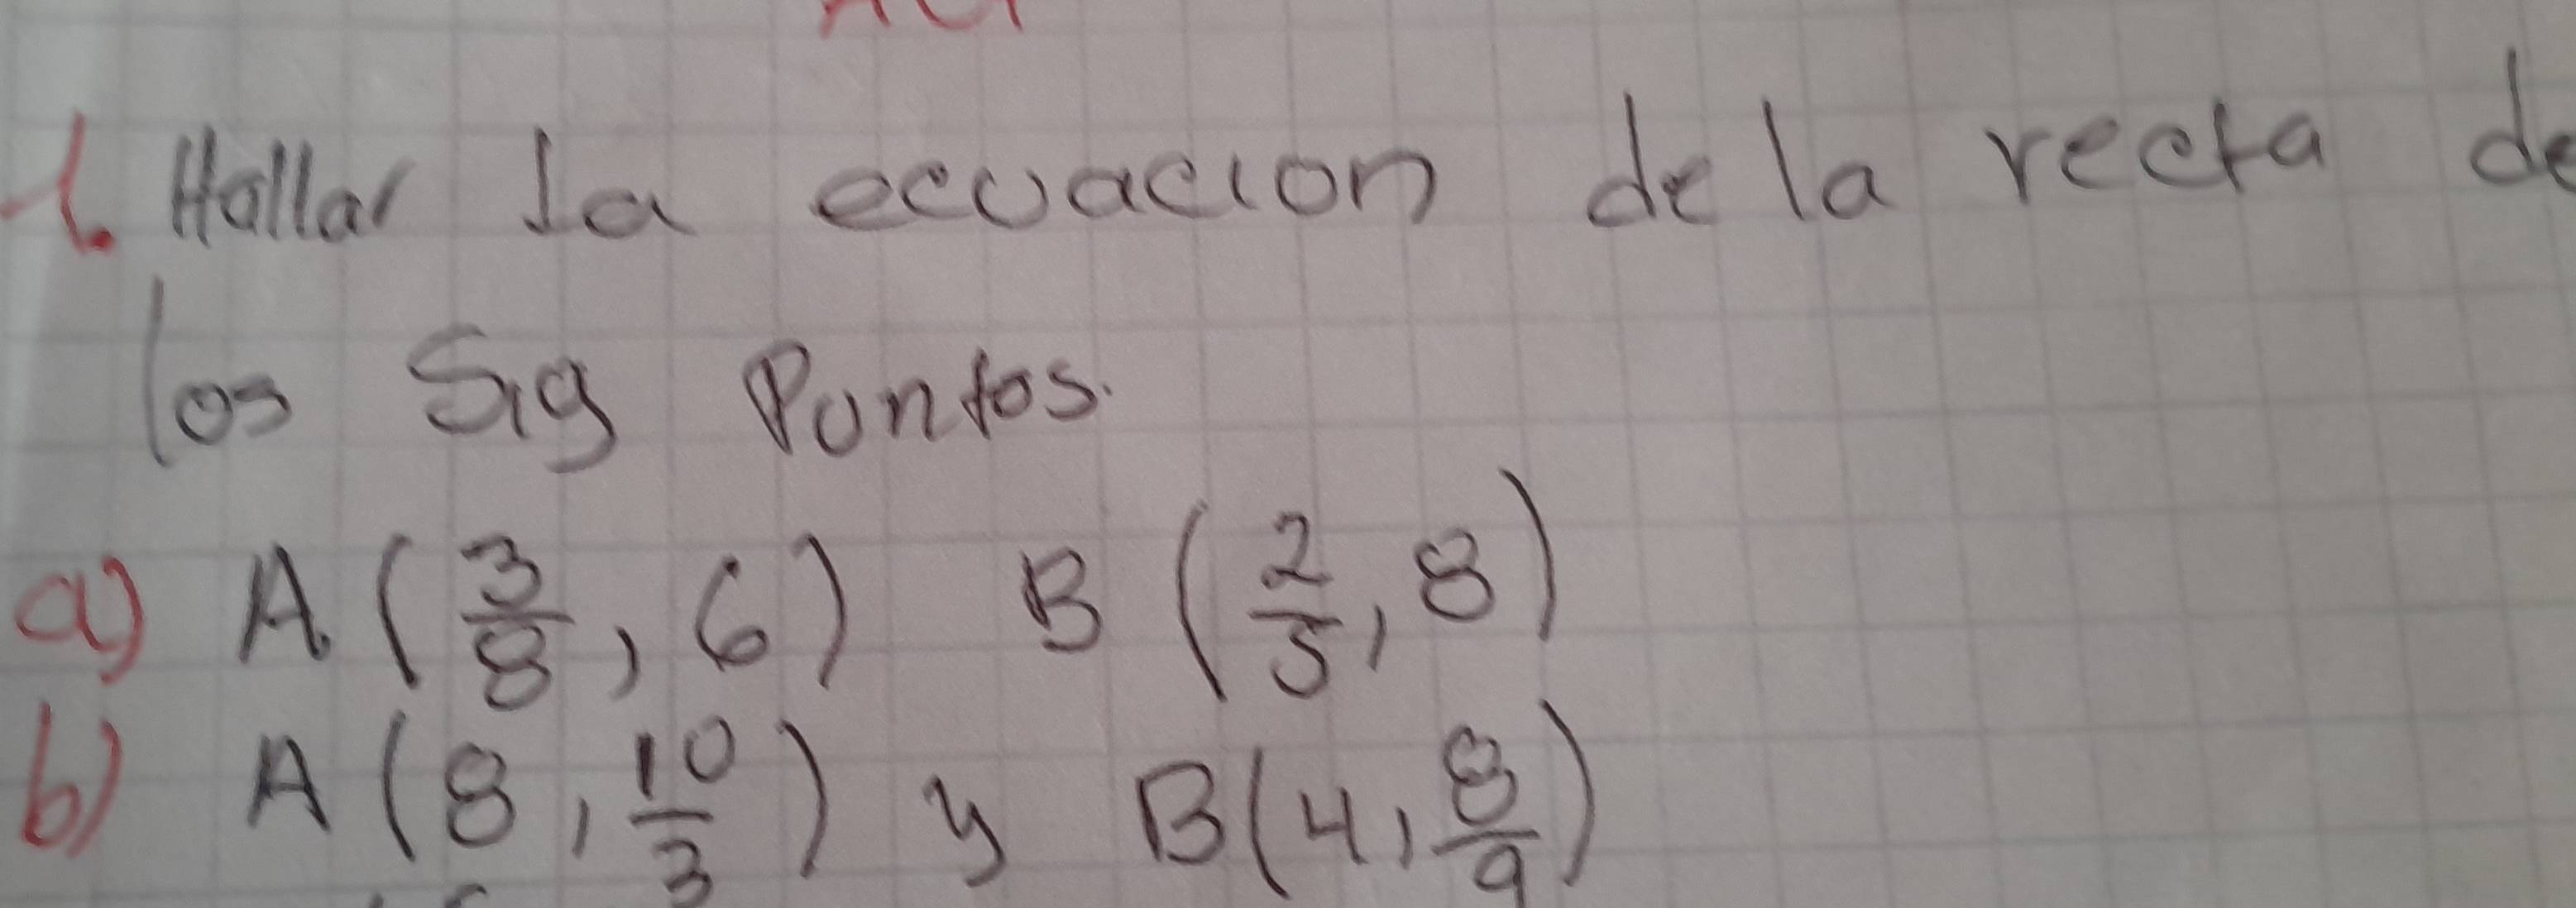 1. Hallar la ecuacion de la recta de
los Sig Puntos.
a) A (3/8, 6) B (2/5, 8)
b) A (8, 10/3) y B(4, 8/9)